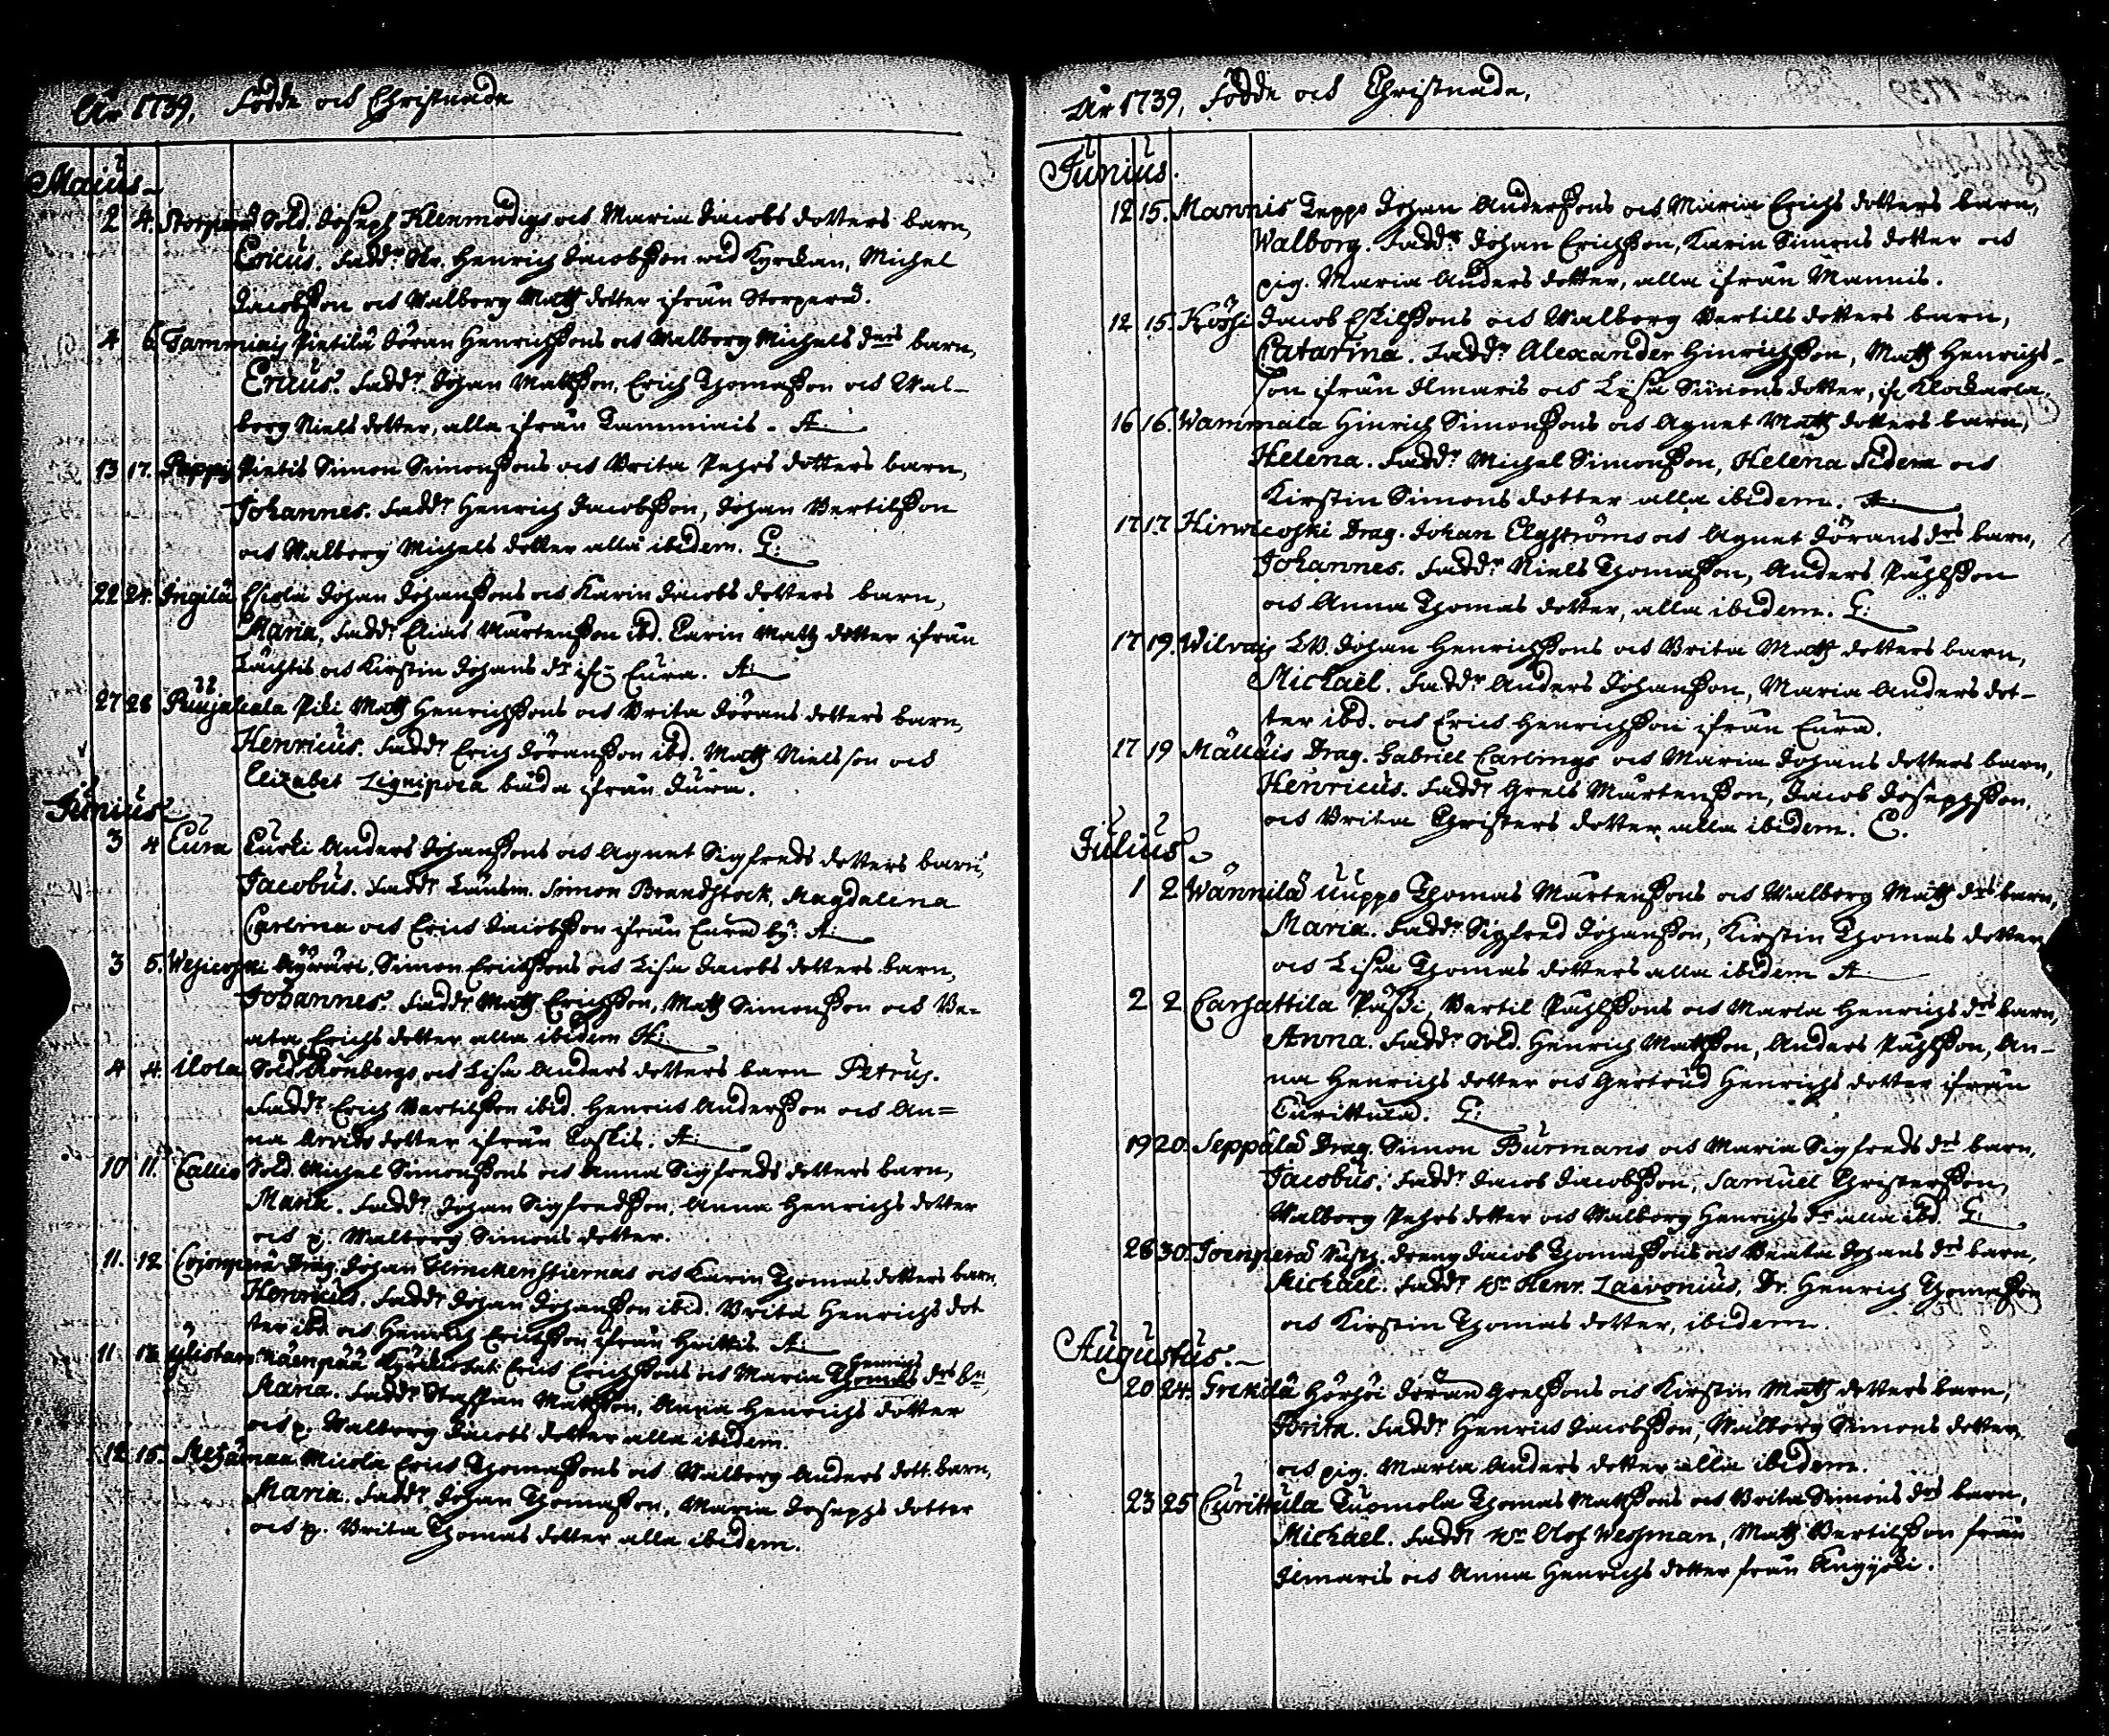 År 1739, Födde och Christnade
Maius
2 4. Storperä Sold. Joseph Klenmodigs och Maria Jacobs dotters barn,
Ericus. Fadd:r Hr. Henrich Jacobsson wid Kyrckan, Michel
Jacobsson och Walborg Matts dotter ifrån Storperä.
4 6. Tammiais Pietilä Jöran Henrichssons och Walborg Michels d:rs barn,
Ericus. Fadd:r Johan Mattsson, Erich Thomasson och Wal-
borg Niels dotter, alla ifrån Tammiais. A
13 17. Pappis Pietis Simon Simonssons och Brita Pehrs dotters barn,
Johannes. Fadd:r Henrich Jacobsson, Johan Bertilsson
och Walborg Michels dotter alla ibidem. G:
22 24. Ingilä Johan Johanssons och Karin Jacobs dotters barn,
Maria, Fadd:r Elias Mårtensson ibd. Carin Matts dotter ifrån
Lächtis och Kirstin Johans d:r ifr. Eura. A:
27 28 Piki Matts Henrichssons och Brita Jörans dotters barn,
Henricus. Fadd:r Erich Jöransson ibd. Matts Nielsson och
Elizabet Lignipoea båda ifrån Eura.
Junius
3 4 Eura Kurki Anders Johanssons och Agnet Sigfreds dotters barn,
Jacobus. Fadd:r Länsm. Simon Brandstock, Magdalena
Carlina och Erics Jacobsson ifrån Eura by. A:
3 5. Simon Erichssons och Lisa Jacobs dotters barn,
Johannes. Fadd:r Matts Erichsson, Matts Simonsson och Be-
ata Erichs dotter alla ibidem A:
4 4. Ilola Sold. Kronbergs och Lisa Anders dotters barn Petrus.
Fadd:r Erich Bertilsson ibid. Henrics Andersson och An=
na Arvids dotter ifrån Koskis. A:
10 11. Callio Sold. Michel Simonssons och Anna Sigfreds dotters barn,
Maria. Fadd:r Johan Sigfredsson, Anna Henrichs dotter
och p. Walborg Simons dotter.
11. 12 Cojonperä Drag. Johan Flinckenstiernas och Karin Thomas dotters barn,
Henricus. Fadd:r Johan Johansson ibid. Brita Henrichs dot
ter ibd. och Henrich Erichsson ifrån Hrittis. A:
11. 12. Ylistaro Mäenpää Erics Erichssons och Maria Thomas Henrichs d:rs b:n,
Maria. Fadd:r Staffan Mattsson, Anna Henrichs dotter
och p. Walborg Jacobs dotter alla ibidem.
12 15. Micola Erics Thomassons och Walborg Anders dott. barn,
Maria. Fadd:r Johan Thomasson, Maria Josephs dotter
och p. Brita Thomas dotter alla ibidem.
År 1739, Födde och Christnade,
Junius.
12 15. Mannis Seppo Johan Anderssons och Maria Erichs dotters barn,
Walborg. Fadd:r Johan Erichsson, Karin Simons dotter och
pig. Maria Anders dotter, alla ifrån Mannis.
12 15. Jacob Eskilssons och Walborg Bertils dotters barn,
Catarina. Fadd:r Alexander Hinrichsson, Matts Henrichs-
son ifrån Ilmaris och Lisa Simons dotter, ifr Klockarla.
16 16. Wammala Hinrich Simonssons och Agnet Matts dotters barn,
Helena. Fadd:r Michel Simonsson, Helena och
Kirstin Simons dotter alla ibidem. A:
17 17. Hirwicoski Drag. Johan Elgströms och Agnet Jörans d:rs barn,
Johannes. Fadd:r Niels Thomasson, Anders Påhlsson
och Anna Thomas dotter, alla ibidem. G:
17 19. Wilvais Johan Henrichssons och Brita Matts dotters barn,
Michaël. Fadd:r Anders Johansson, Maria Anders dot-
ter ibd. och Erics Henrichsson ifrån Eura.
17 19 Mälläis Drag. Gabriel Carlings och Maria Johans dotters barn,
Henricus. Fadd:r Grels Mårtensson, Jacob Josephsson,
och Brita Christers dotter alla ibidem. C.
Julius
1 2 Wännilä Uuppo Thomas Mårtenssons och Walborg Matts d:rs barn,
Maria. Fadd:r Sigfred Johansson, Kirstin Thomas dotter
och Lisa Thomas dotters alla ibidem A
2 2 Carhattila Påssi, Bertil Påhlssons och Maria Henrichs d:rs barn,
Anna. Fadd:r Sold. Henrich Mattsson, Anders Påhlsson, An-
na Henrichs dotter och Gertrud Henrichs dotter ifrån
Turittula. G:
19 20. Seppälä Drag. Simon Burmans och Maria Sigfreds d:rs barn,
Jacobus. Fadd:r Jacob Jacobsson, Samuel Christersson,
Walborg Pehrs dotter och Walborg Henrichs d:r alla ibd. G:
28 30. Joenperä dreng Jacob Thomassons och Beata Johans d:rs barn,
Michaël. Fadd:r Henr. Laevonius, Dr. Henrich Thomasson
och Kirstin Thomas dotter, ibidem.
Augustus.
20 24. Frekilä Jöran Grelssons och Kirstin Matts dotters barn,
Brita. Fadd:r Henrics Jacobsson, Walborg Simons dotter,
och pig. Maria Anders dotter alla ibidem.
23 25 Turittula Tuomola Thomas Mattssons och Brita Simons d:rs barn,
Michaël. Fadd:r Olof Westman, Matts Bertilsson från
Ilmaris och Anna Henrichs dotter från